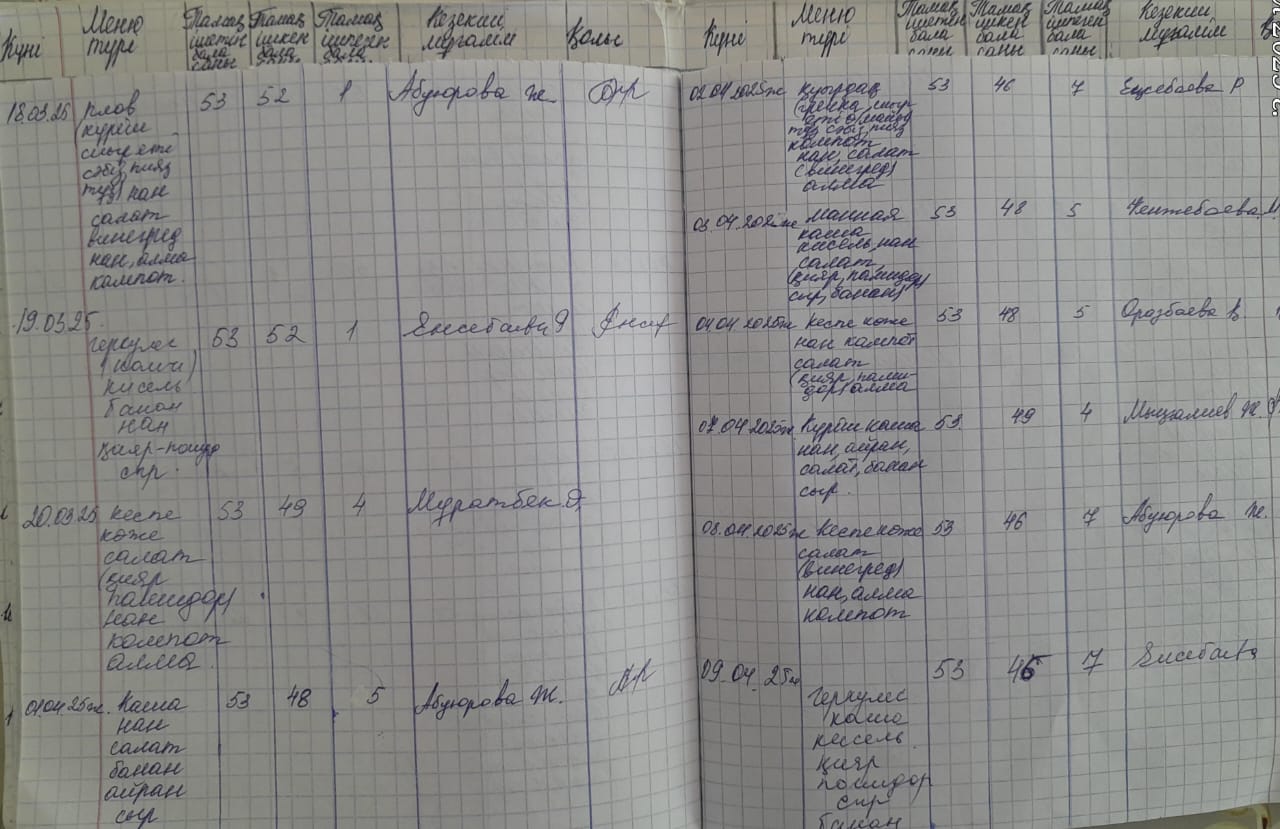 Күні
Меню түрі
Тамақ ішетін бала саны
Тамақ ішкен бала саны
Тамақ ішпеген бала
Кезекші мұғалім
Қолы
18.03.25 плов 53 52 1 Абуюрова Ж.
(күріш
сиыр еті
сәбіз, пияз
тұз) нан
салат
винегред
нан, алма
компот.
19.03.25.
геркулес 53 52 1
кисель
банан
нан
сыр.
20.03.25 Кеспе 53 49 4 Муратбек
көже
салат
(қияр
помидор)
нан
компот
алма.
01.04.25ж. Каша 53 48 5 Абуюрова Ж.
нан
салат
банан
айран
сыр
Күні
Меню түрі
Тамақ ішетін бала саны
Тамақ ішкен бала саны
Тамақ ішпеген бала саны
Кезекші мұғалім
02.04.2025ж Қуырдақ 53 46 7
(гречка, сиыр
тұз, сәбіз, пияз
компот
нан, салат
(винегред)
алма
03.04.2025ж Манная 53 48 5
каша
кисель, нан
салат
(қияр, помидор)
сыр, банан)
04.04.2025ж Кеспе көже 53 48 5 Оразбаева
нан компот
салат
(қияр, поми-
дор) алма
04.2025ж Күріш каша 53. 49 4
нан, айран,
салат, банан
сыр.
08.04.2025ж Кеспе көже 53 46 7 Абуюрова Ж.
салат
(винегред)
нан, алма
компот
09.04.25ж 53 46 7
Геркулес
каша
кисель
қияр
помидор
сыр
банан